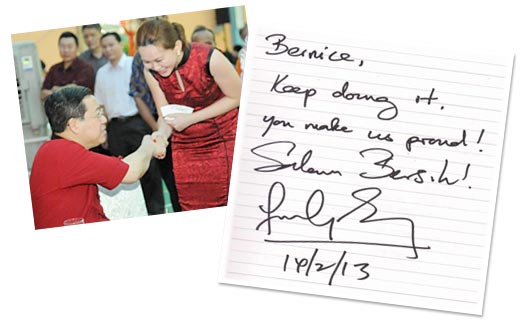 Bernice,
Keep doing it.
you make us proud!
Salam Bersih!
14/2/13